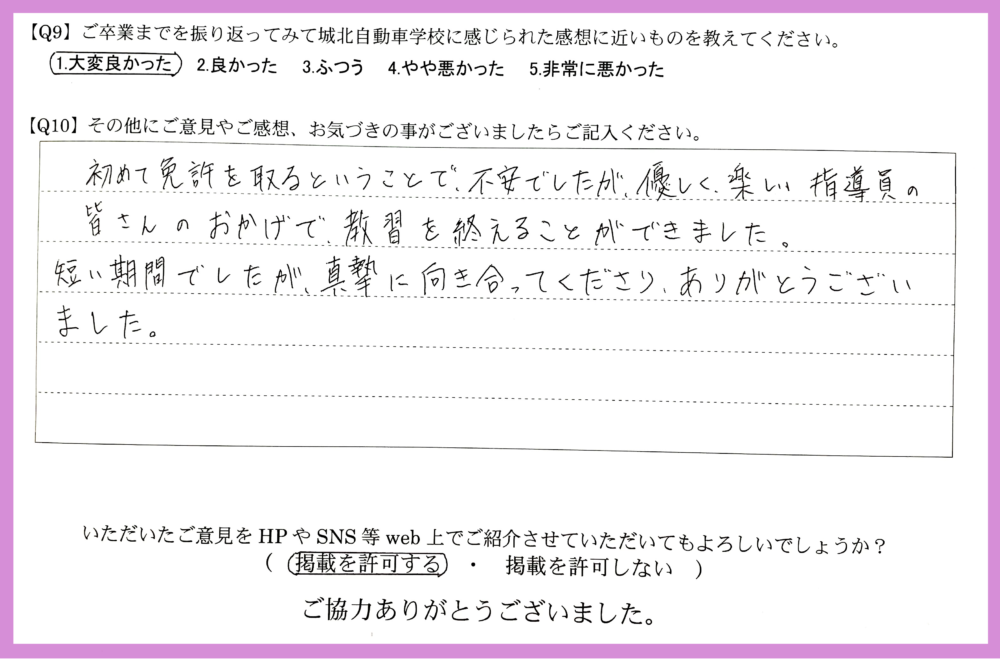 【Q9】ご卒業までを振り返ってみて城北自動車学校に感じられた感想に近いものを教えてください。
1.大変良かった 2.良かった 3.ふつう 4.やや悪かった 5.非常に悪かった
【Q10】その他にご意見やご感想、お気づきの事がございましたらご記入ください。
初めて免許を取るということで、不安でしたが、優しく、楽しい指導員の
皆さんのおかげで、教習を終えることができました。
短い期間でしたが、真摯に向き合ってくださり、ありがとうござい
ました。
いただいたご意見をHPやSNS等web上でご紹介させていただいてもよろしいでしょうか？
( 掲載を許可する ・ 掲載を許可しない )
ご協力ありがとうございました。